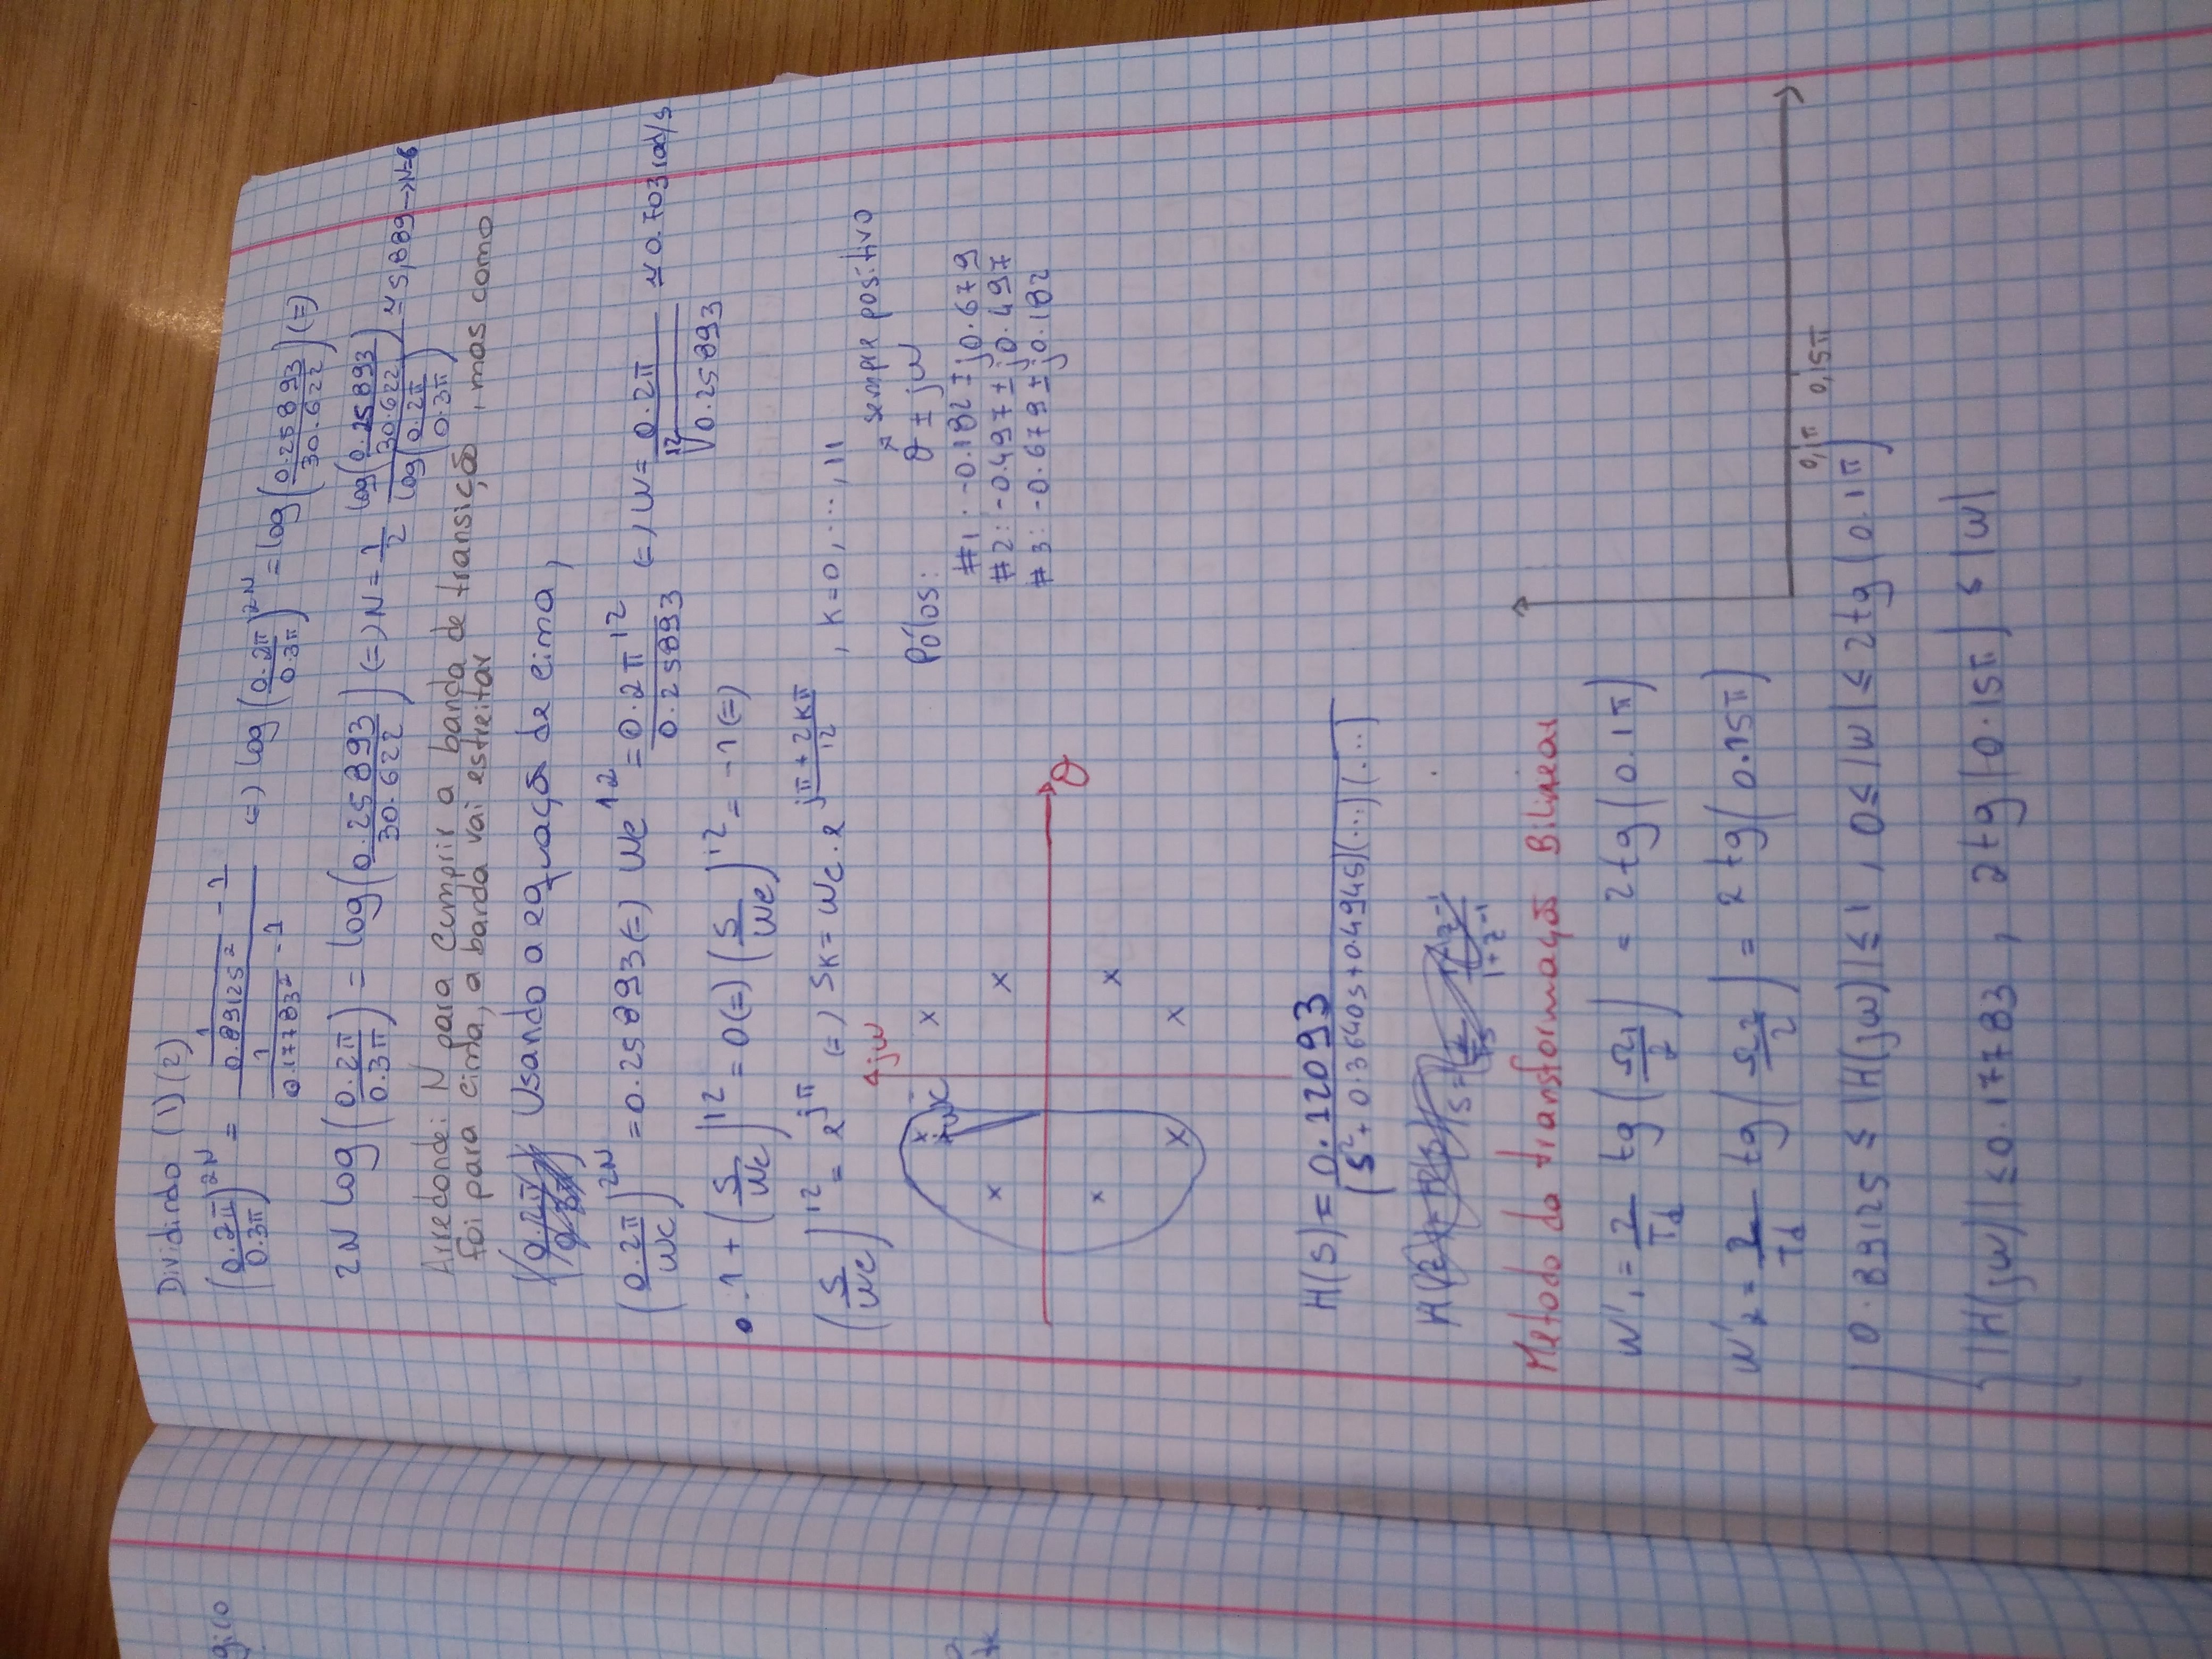 gico
Dividindo (1)(2)
(0.2π/0.3π)^2N = (1/0.89125² - 1)/(1/0.17783² - 1) (=) log(0.2π/0.3π)^2N = log(0.25893/30.622) (=)
2N log(0.2π/0.3π) = log(0.25893/30.622) (=) N = 1/2 log(0.25893/30.622)/log(0.2π/0.3π) ≃ 5,889 → N=6
Arredondei N para cumprir a banda de transição, mas como
foi para cima, a banda vai estreitar
Usando a equação de cima,
(0.2π/wc)^2N = 0.25893 (=) wc^12 = 0.2π^12/0.25893 (=) w = 0.2π/¹²√0.25893 ≃ 0.703 rad/s
• 1 + (s/wc)^12 = 0 (=) (s/wc)^12 = -1 (=)
(s/wc)^12 = e^jπ (=) sk = wc . e^(jπ + 2kπ/12) , k = 0, ..., 11
jw
sempre positivo
Pólos: σ ± jw
wc
#1: -0.182 ± j0.679
#2: -0.497 ± j0.497
#3: -0.679 ± j0.182
σ
H(s) = 0.12093/(s² + 0.3640s + 0.4945)(...)(...)
H(z) = H(s)|s = 2/Ts 1 - z^-1/1 + z^-1
Metodo da transformação Bilinear
w'1 = 2/Td tg(Ω1/2) = 2 tg(0.1π)
w'2 = 2/Td tg(Ω2/2) = 2 tg(0.15π)
0,1π 0,15π
0.89125 ≤ |H(jw)| ≤ 1 , 0 ≤ |w| ≤ 2 tg(0.1π)
|H(jw)| ≤ 0.17783 , 2 tg(0.15π) ≤ |w|